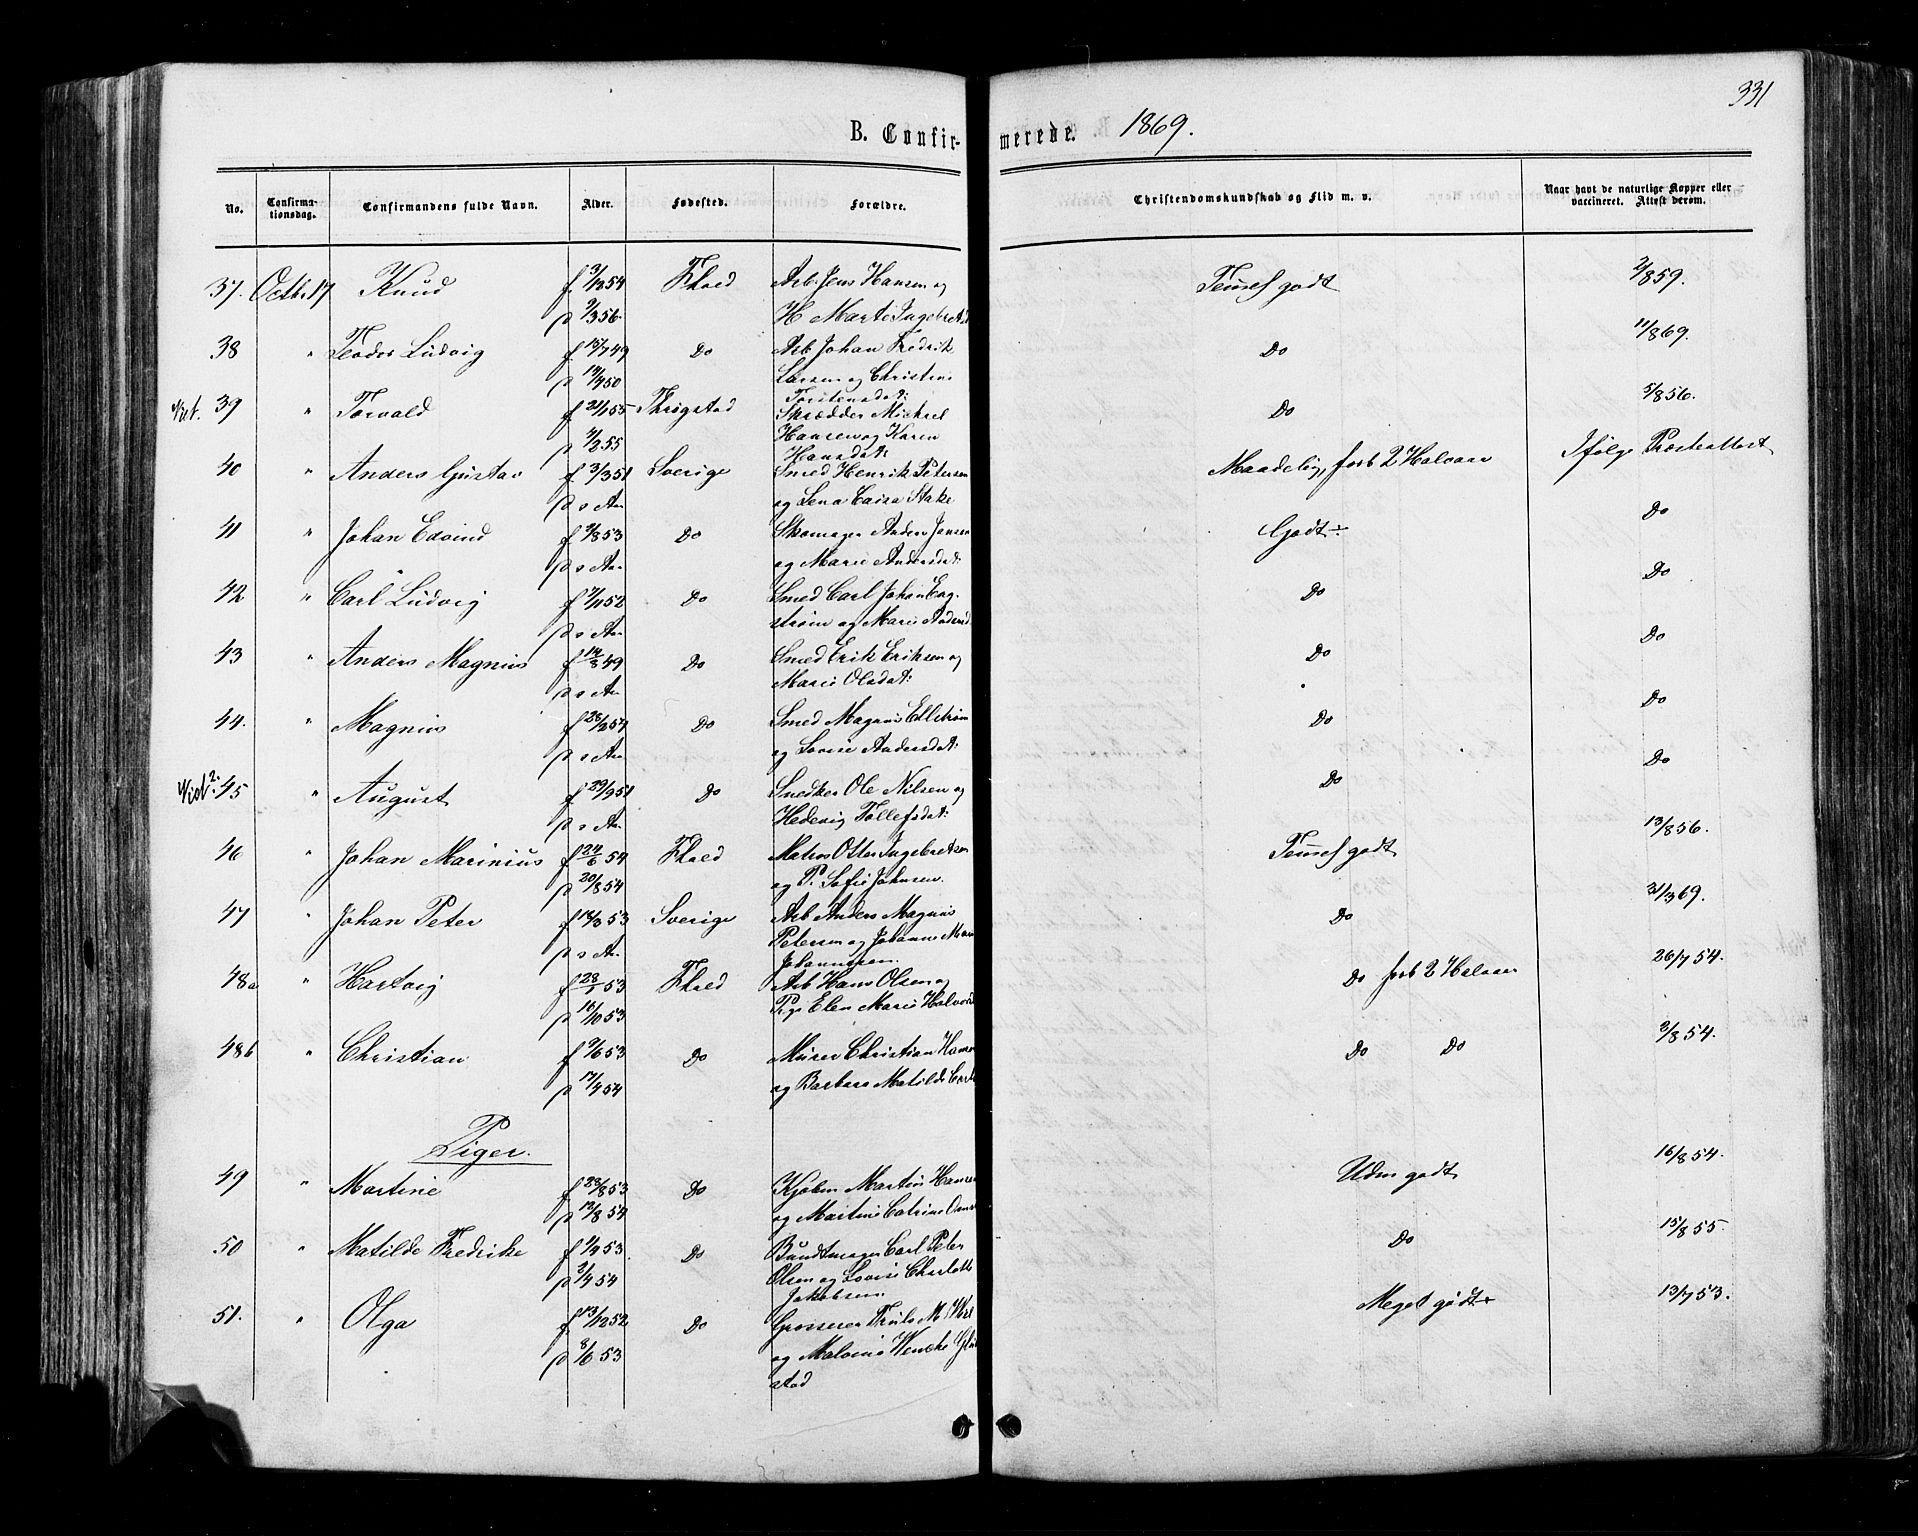 331
B. Confirmerede. 1869.
No. Confirmationsdag. Confirmandens fulde Navn. Alder. Fødested. Forældre. Christendomskundskab og Flid m. v. Naar havt de naturlige Kopper eller vaccineret. Attest derom.
37. Octbr. 17 Knud f. 3/12 54 Fhald Arb. Jens Hansen og Temel godt 2/8 59.
p 9/3 56. H Marte Ingebretsd
38 " Teodor Ludvig f. 15/7 49 Do Arb. Johan Fredrik Do 11/8 69.
p 14/4 50 Larsen og Christine
Torstensdat:
39 " Torvald f 21/1 55 Thrigstad Skrædder Mickel Do 5/8 56.
p 4/2 55 Hansen og Karen
Hansdat:
40 " Anders Gustav f 3/3 51 Sverige Smed Henrik Petersen Maadelig, forb 2 Halvaar Ifølge Præsteattest
p s Aa. og Lena Caisa Stake
41 " Johan Edvind f 9/8 53 Do Skomager Anders Jansen Godt ÷ Do
p s Aa. og Marie Andersdat:
42 " Carl Ludvig f 7/11 52 Do Smed Carl Johan Eng- Do Do
p s Aa. strøm og Marie
43 " Anders Magnius f 14/8 49 Do Smed Erik Eriksen og Do Do
p s Aa. Marie Olsdat:
44. " Magnius f 28/2 54 Do Smed Magnus Ellstrøm Do Do
p s Aa. og Lovise Andersdat:
45 " August f 29/9 51 Do Snedker Ole Nilsen og Do Do
p s Aa. Hedevig Tollefsdat:
46 " Johan Marinius f 24/6 54 Fhald Matros Otter Ingebretsen Temel godt 13/8 56.
p 20/8 54 og P. Sofie Johnsen.
47 " Johan Peter f 18/3 53 Sverige Arb Anders Magnus Do 31/3 69.
p s Aa. Petersen og Johanne
Johannesen.
48a " Hartvig f 28/1 53 Fhald Arb Hans Olsen og Do forb 2 Halvaar 26/7 54.
p 16/10 53 Pige Elen Marie Halvorsd
48b " Christian f 9/6 53 Do Murer Christian Hansen Do Do 9/8 54.
p 17/4 54 og Barbara Matilde
Piger.
49 " Martine f 28/8 53 Do Kjøbm Martin Hansen Udm godt 16/8 54.
p 13/8 54 og Martine Catrine
50 " Matilde Fredrike f 1/9 53. Do Bundtmager Carl Peter Do 15/8 55
p 2/4 54 Olsen og Lovise Charlotte
Jakobsen
51. " Olga f. 13/12 52 Do Grosserer Truls M. Wiel Meget godt + 13/7 53.
p 8/6 53 og Malvine Wencke
stad